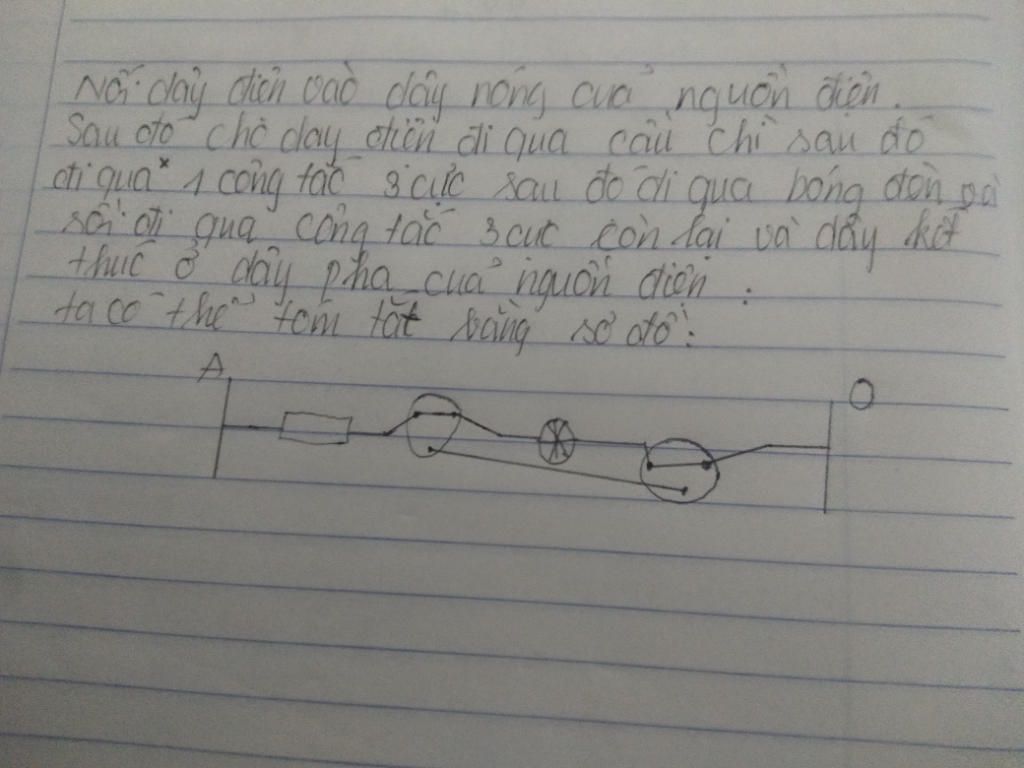 Nối dây điện vào dây nóng của nguồn điện.
Sau đó cho dây điện đi qua cầu chì sau đó
đi qua 1 công tắc 3 cực sau đó đi qua bóng đèn và
rồi đi qua công tắc 3 cực còn lại và dây kết
thúc ở dây pha của nguồn điện.
ta có thể tóm tắt bằng sơ đồ:
A O